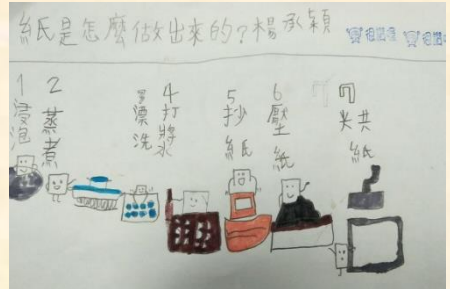 紙是怎麼做出來的?楊承穎
1浸泡
2蒸煮
3漂洗
4打將水
5抄紙
6壓紙
7夾共紙